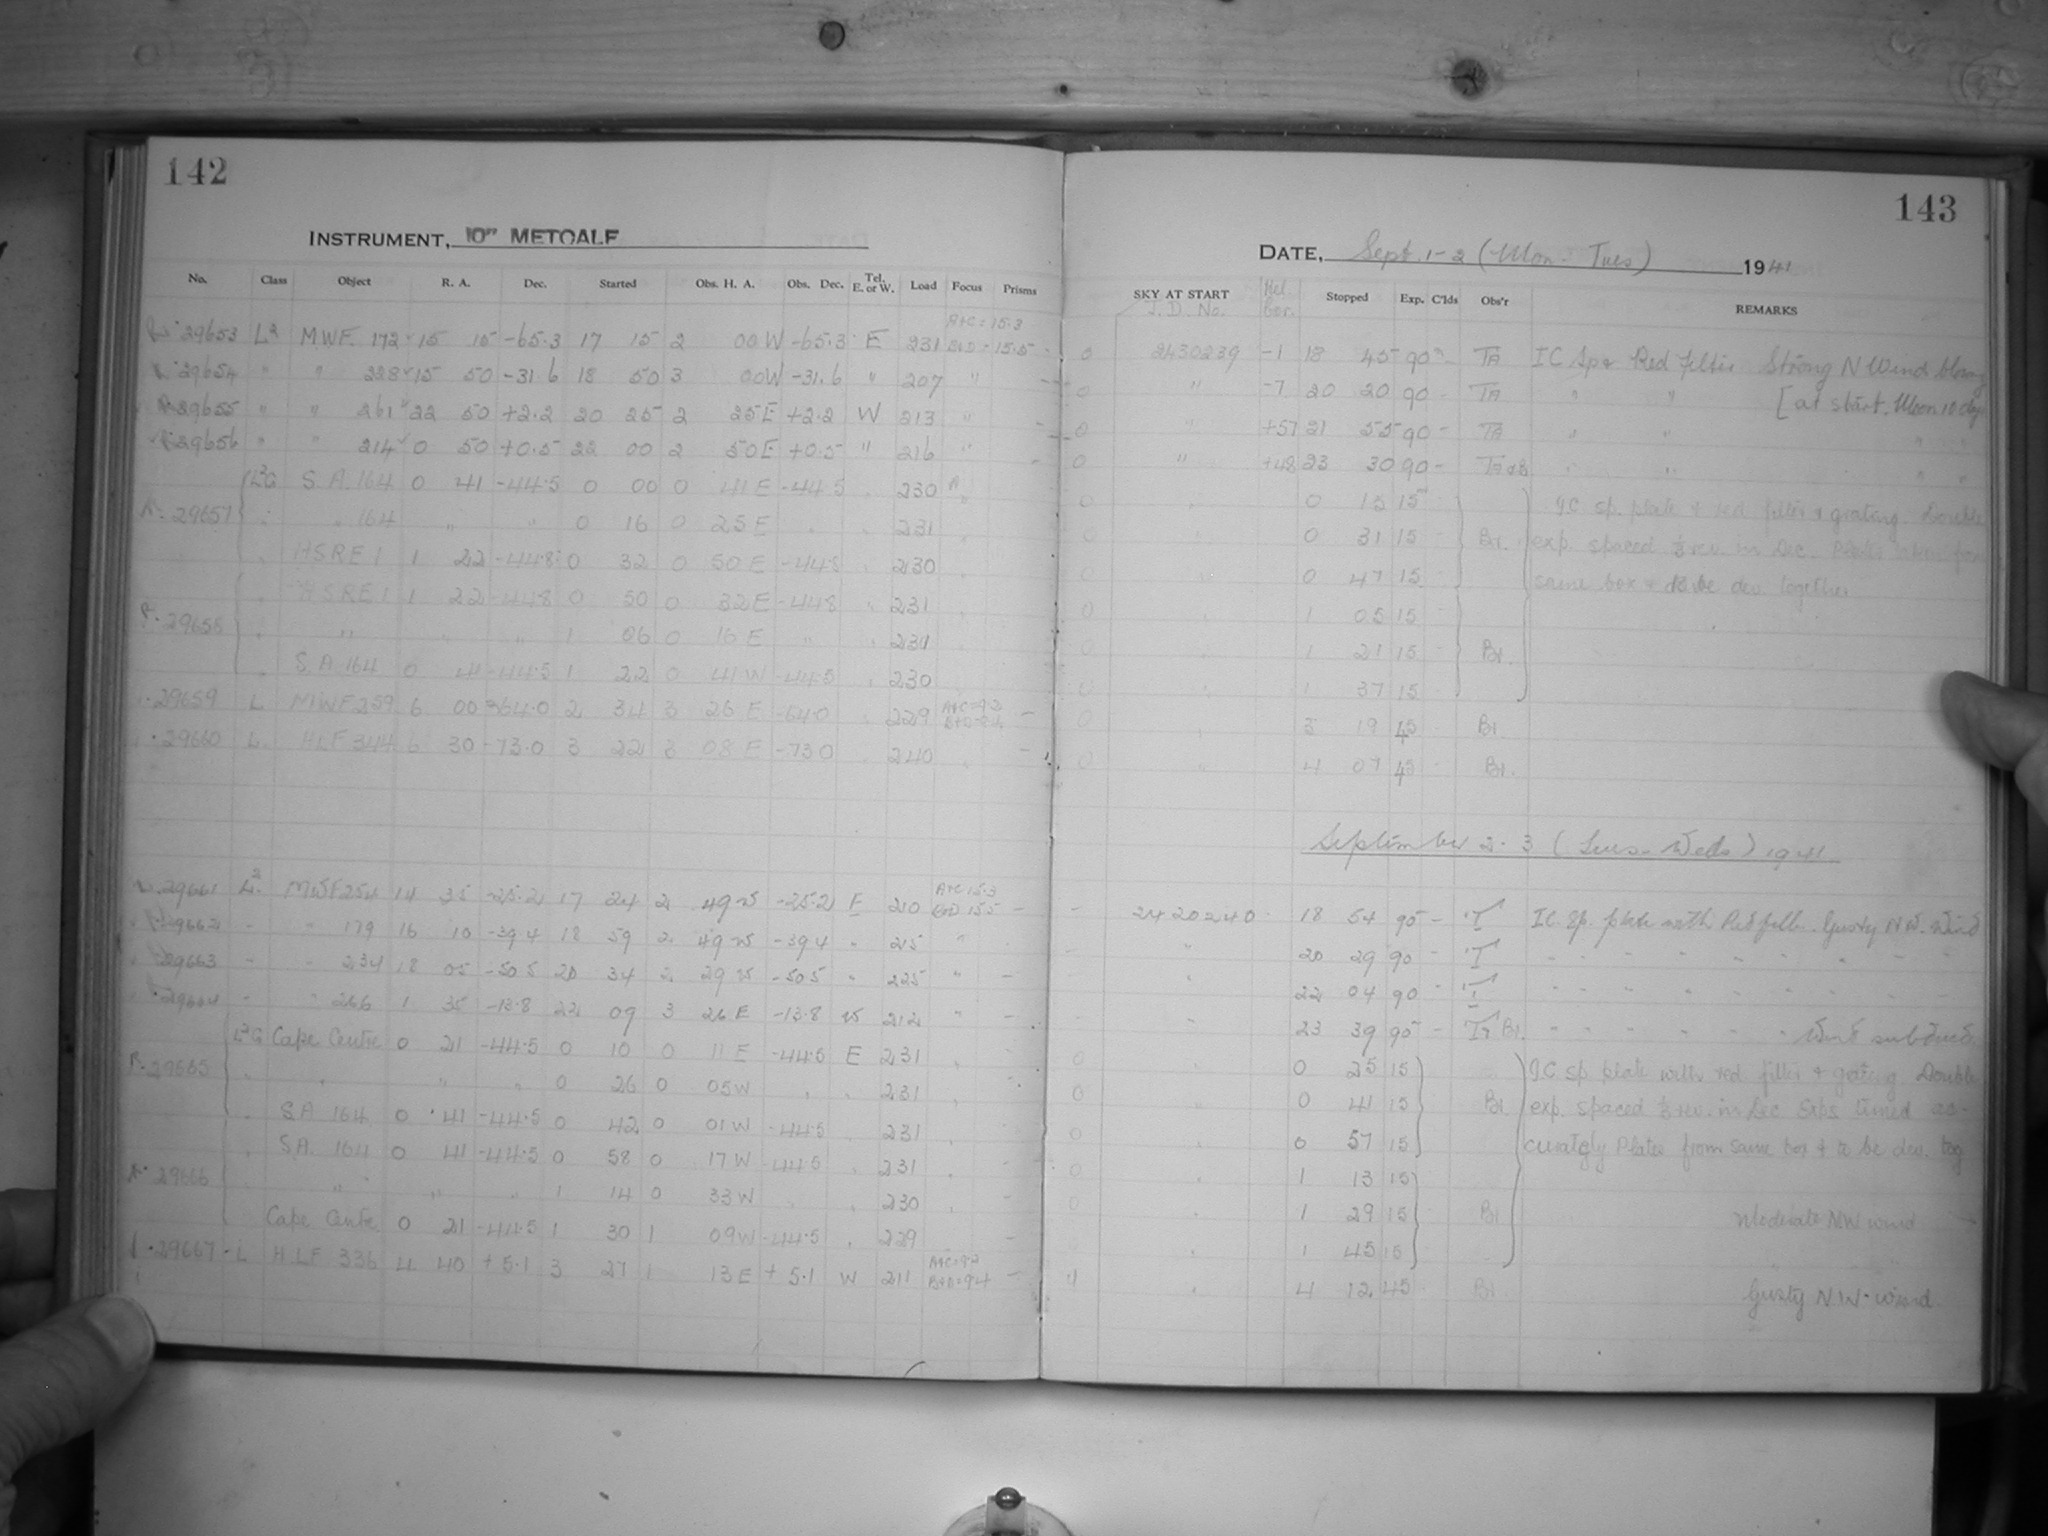 142
INSTRUMENT, 10" METCALF
No. Class Object R. A. Dec. Started Obs. H. A. Obs. Dec. Tel. E. or W. Load Focus Prisms
29653 L² MWF 172 15 15 -65.3 17 15 2 00W -65.3 E 231 A+C = 15.3 B+D = 15.5 -
29654 " " 228 15 50 -31.6 18 50 3 00W -31.6 " 207 "
29655 " " 261 22 50 +2.2 20 25 2 25E +2.2 W 213 " -
29656 " " 214 0 50 +0.5 22 00 2 50E +0.5 " 216 " -
L²G S.A. 164 0 41 -44.5 0 00 0 41E -44.5 230
29657 " 164 " " 0 16 0 25E 231
HSRE 1 1 22 -44.8 0 32 0 50E 230
HSRE 1 1 22 -44.8 0 50 0 32E -44.8 231
29658 " " " 1 06 0 16E " 231
S.A. 164 0 41 -44.5 1 22 0 41W -44.5 230
29659 L MWF 259 6 00 64.0 2 34 3 26E -64.0 229 -
29660 L HLF 344 6 30 -73.0 3 22 3 08E -73.0 240 -
29661 L² MWF 254 14 35 -25.2 17 24 2 49W -25.2 E 210 A+C 15.3 B+D 15.5 -
29662 - " 179 16 10 -39.4 18 59 2 49W -39.4 " 215 " -
29663 - " 234 18 05 -50.5 20 34 2 29W -50.5 " 225 " -
29664 - " 266 1 35 -13.8 22 09 3 26E -13.8 W 212 " -
L²G Cape Centre 0 21 -44.5 0 10 0 11E -44.5 E 231
29665 " " " 0 26 0 05W 231
S.A. 164 0 41 -44.5 0 42 0 01W -44.5 231
S.A. 164 0 41 -44.5 0 58 0 17W -44.5 231
29666 " " 1 14 0 33W 230
Cape Centre 0 21 -44.5 1 30 1 09W -44.5 229
29667 L HLF 336 4 40 +5.1 3 27 1 13E +5.1 W 211 A+C=9.2 B+D=9.4 -
143
DATE, Sept. 1-2 (Mon - Tues) 1941
SKY AT START J.D. No. Stopped Exp. C'lds Obs'r REMARKS
0 2430239 -1 18 45 90 - TA IC Sp & Red filter Strong N Wind blowing
0 " -7 20 20 90 - TA " " [at start. Moon 10 days
0 " +57 21 55 90 - TA " " " "
0 " +48 23 30 90 - " " " "
0 0 15 15 IC sp. plate & red filter & grating. Double
0 0 31 15 Br. exp. spaced ½ rev. in Dec. Plates taken from
0 0 47 15 same box & to be dev. together
0 1 05 15
0 1 21 15 Br.
0 1 37 15
0 3 19 45 Br.
0 " 4 07 45 Br.
September 2-3 (Tues - Weds) 1941
- 2420240 18 54 90 - T IC Sp. plate with Red filt. Gusty N.W. Wind
- " 20 29 90 - T
- " 22 04 90 - T
- " 23 39 90 - Br. Wind subdued
0 0 25 15 IC sp plate with red filter & grating Double
0 0 41 15 Br exp. spaced ½ rev. in Dec Exps timed ac-
0 0 57 15 curately Plates from same box & to be dev. tog
0 1 13 15
0 1 29 15 Br Moderate NW wind
1 45 15
4 12 45 Br Gusty N.W. wind